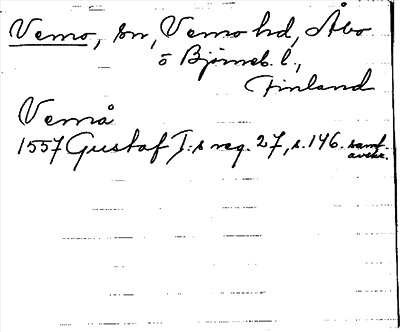 Vemo, sn, Vemo hd, Åbo
o Björneb. l.,
Finland
Vemå
1557 Gustaf I:s reg. 27, s. 146. samt.
avskr.